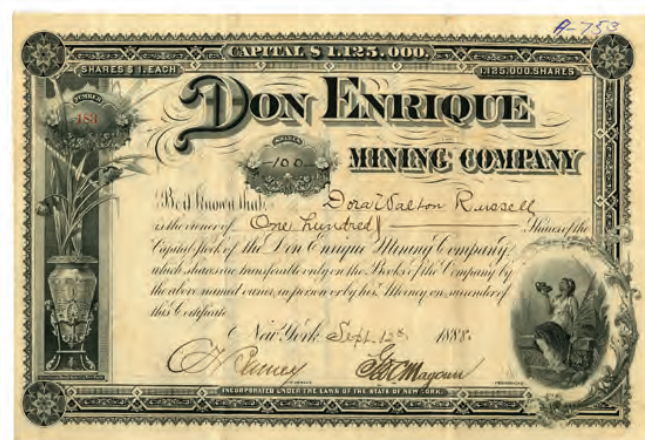 A-753
CAPITAL $1.125.000.
SHARES $1. EACH
1.125.000. SHARES
NUMBER
DON ENRIQUE
SHARES
100
MINING COMPANY
Be it Known that Dora Walton Russell
is the owner of One hundred Shares of the
Capital Stock of the Don Enrique Mining Company,
which shares are transferable only on the Books of the Company by
the above named owner, in person or by his Attorney on surrender of
this Certificate
New York Sept. 12th 1888.
INCORPORATED UNDER THE LAWS OF THE STATE OF NEW YORK.